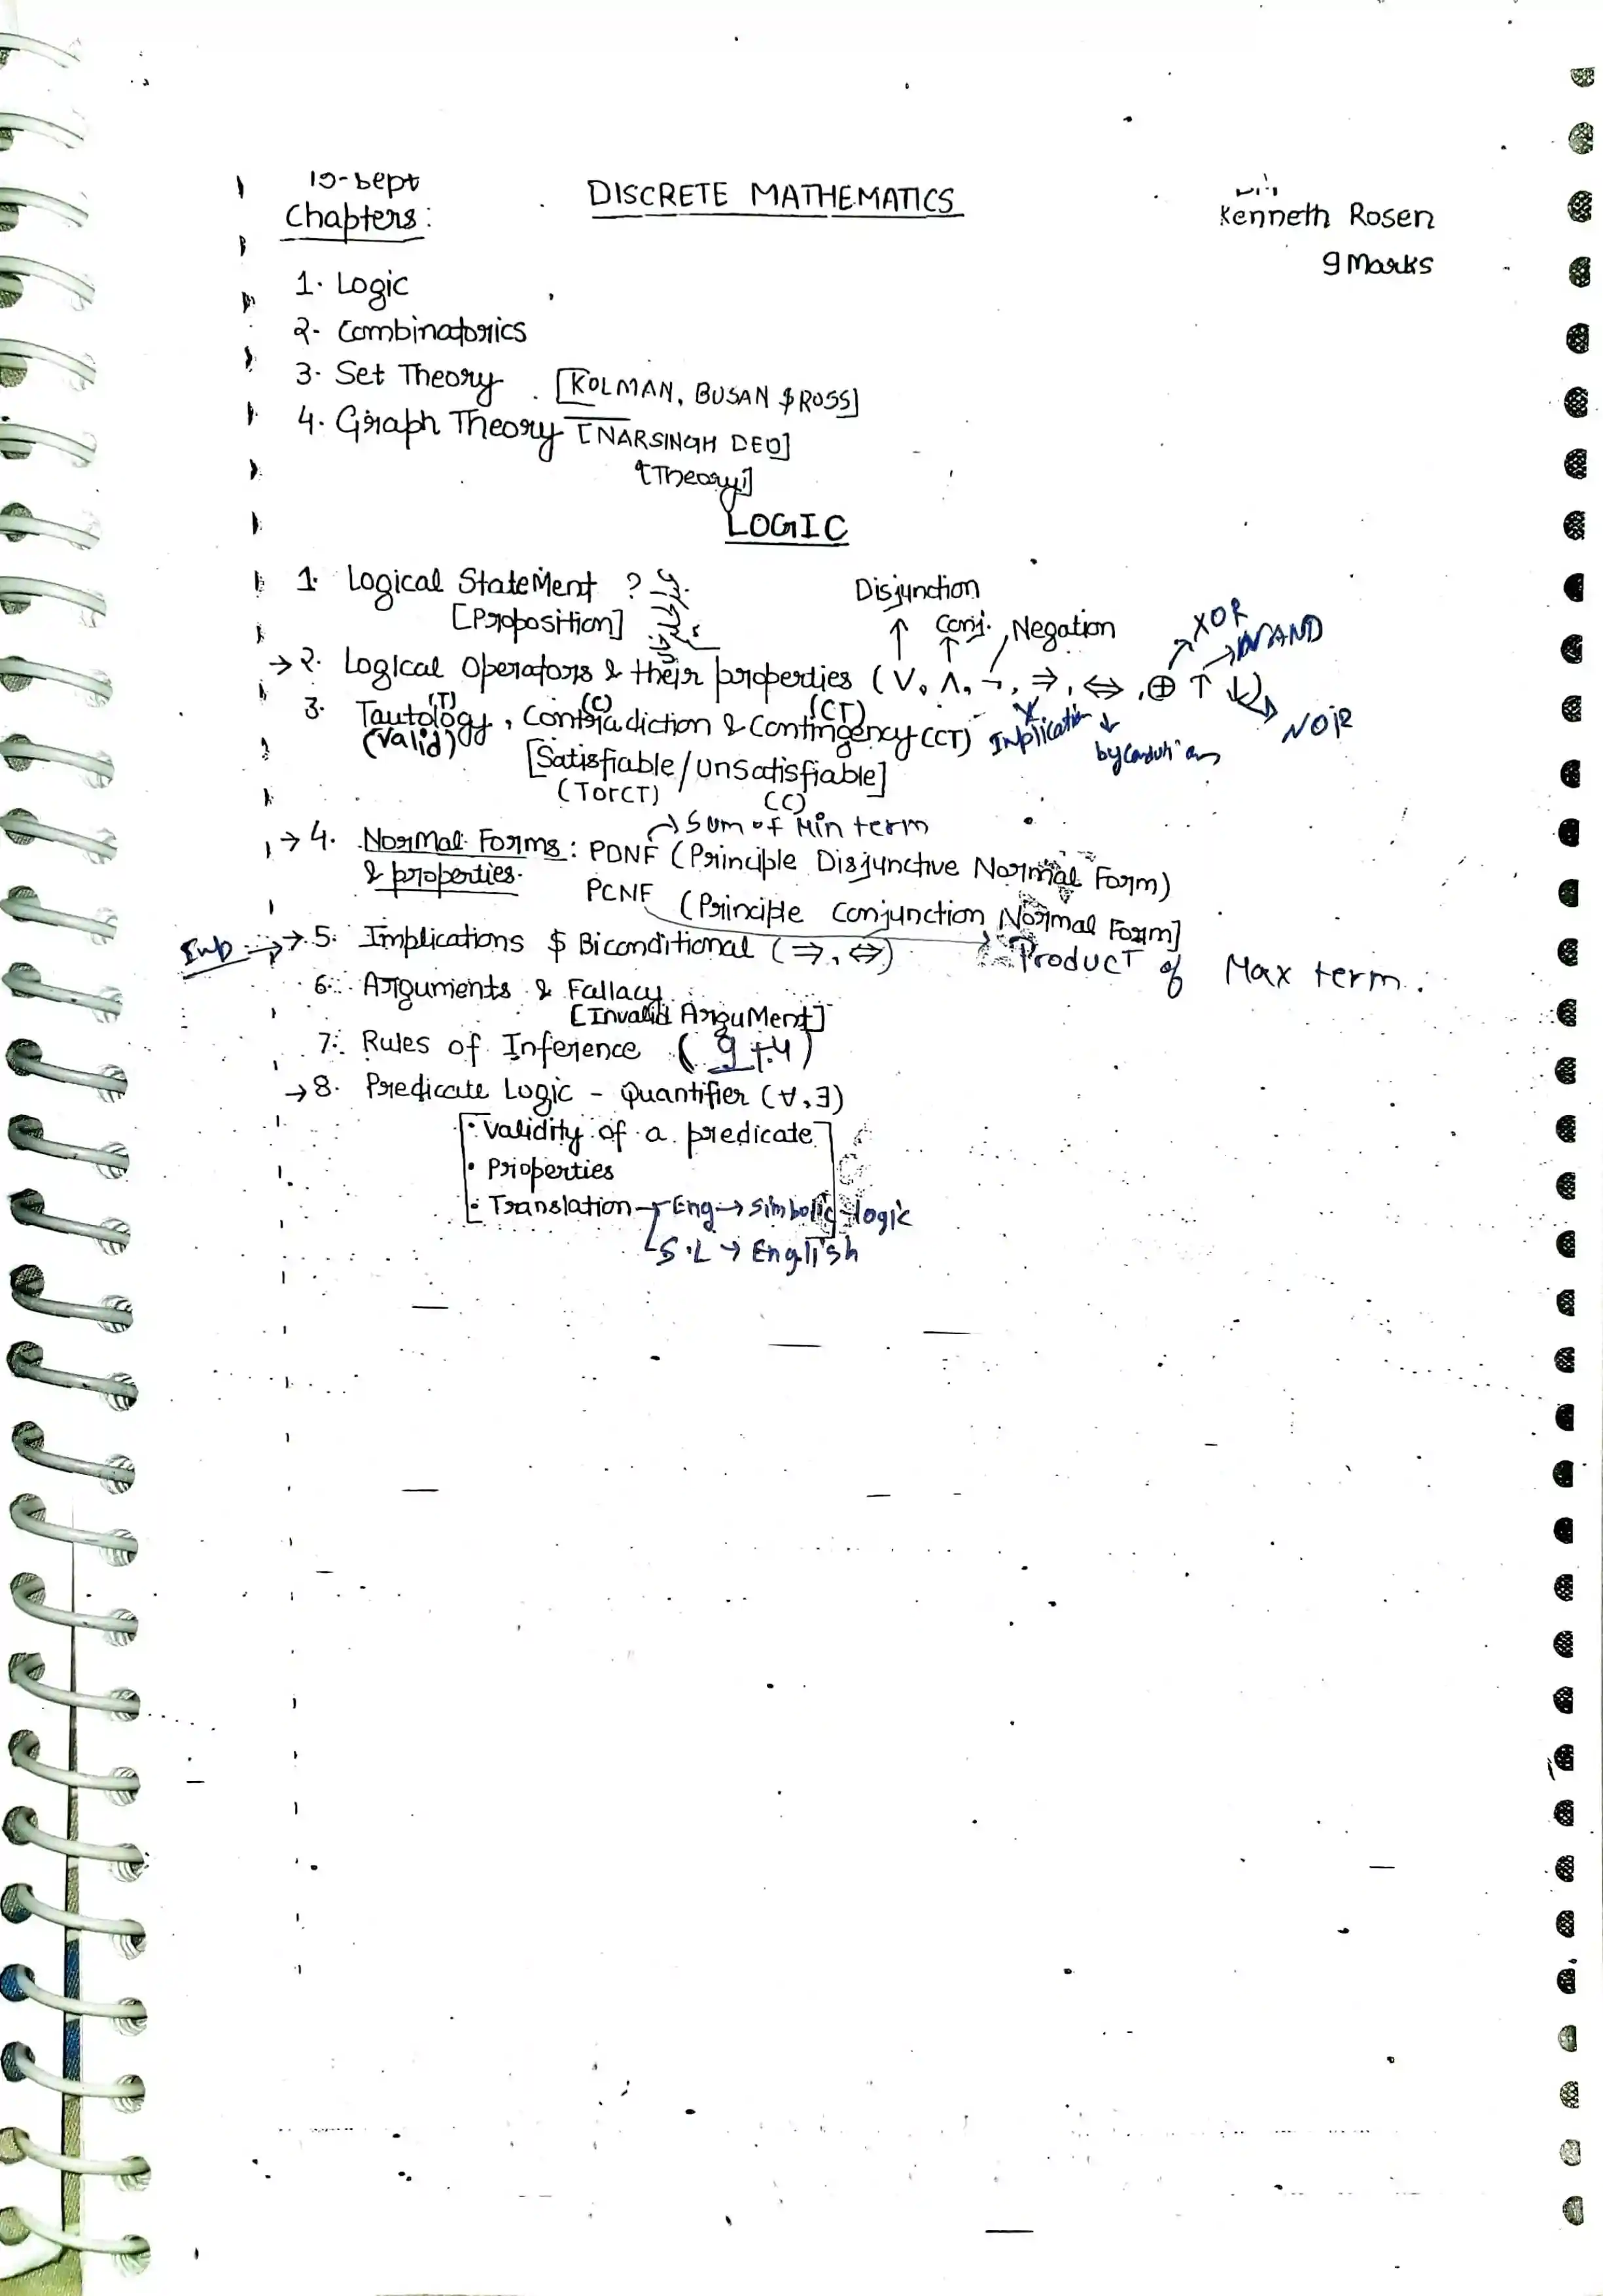 10-Sept
DISCRETE MATHEMATICS
Chapters:
Kenneth Rosen
9 Marks
1. Logic
2. Combinatorics
3. Set Theory [KOLMAN, BUSAN $ ROSS]
4. Graph Theory [NARSINGH DEO]
[Theory]
LOGIC
1. Logical Statement ?
[Proposition]
Disjunction
Conj. Negation XOR NAND
→ 2. Logical Operators & their properties (∨, ∧, ¬, ⇒, ⇔, ⊕ ↑ ↓) NOR
(T) (C) (CT)
3. Tautology, Contradiction & Contingency (CT) Implication
(Valid)
[Satisfiable/Unsatisfiable]
(T or CT) (C)
→ Sum of Min term
→ 4. Normal Forms: PDNF (Principle Disjunctive Normal Form)
& properties.
PCNF (Principle Conjunction Normal Form]
Product of Max term.
Imp → → 5. Implications $ Biconditional (⇒, ⇔)
6. Arguments & Fallacy
[Invalid Argument]
7. Rules of Inference (9+4)
→ 8. Predicate Logic - Quantifier (∀, ∃)
• Validity of a predicate
• Properties
• Translation → Eng → Simbolic logic
S.L → English